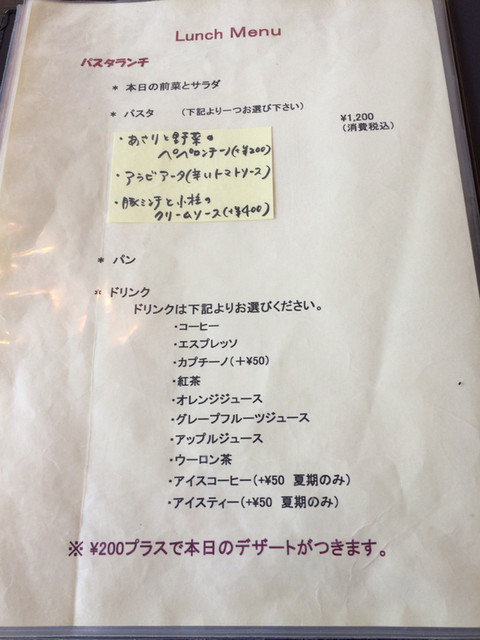 Lunch Menu
パスタランチ
* 本日の前菜とサラダ
* パスタ (下記より一つお選び下さい)
¥1,200
(消費税込)
・あさりと野菜の
ペペロンチーノ(+¥200)
・アラビアータ(辛いトマトソース)
・豚ミンチと小柱の
クリームソース(+¥400)
* パン
* ドリンク
ドリンクは下記よりお選びください。
・コーヒー
・エスプレッソ
・カプチーノ(+¥50)
・紅茶
・オレンジジュース
・グレープフルーツジュース
・アップルジュース
・ウーロン茶
・アイスコーヒー(+¥50 夏期のみ)
・アイスティー(+¥50 夏期のみ)
※ ¥200プラスで本日のデザートがつきます。